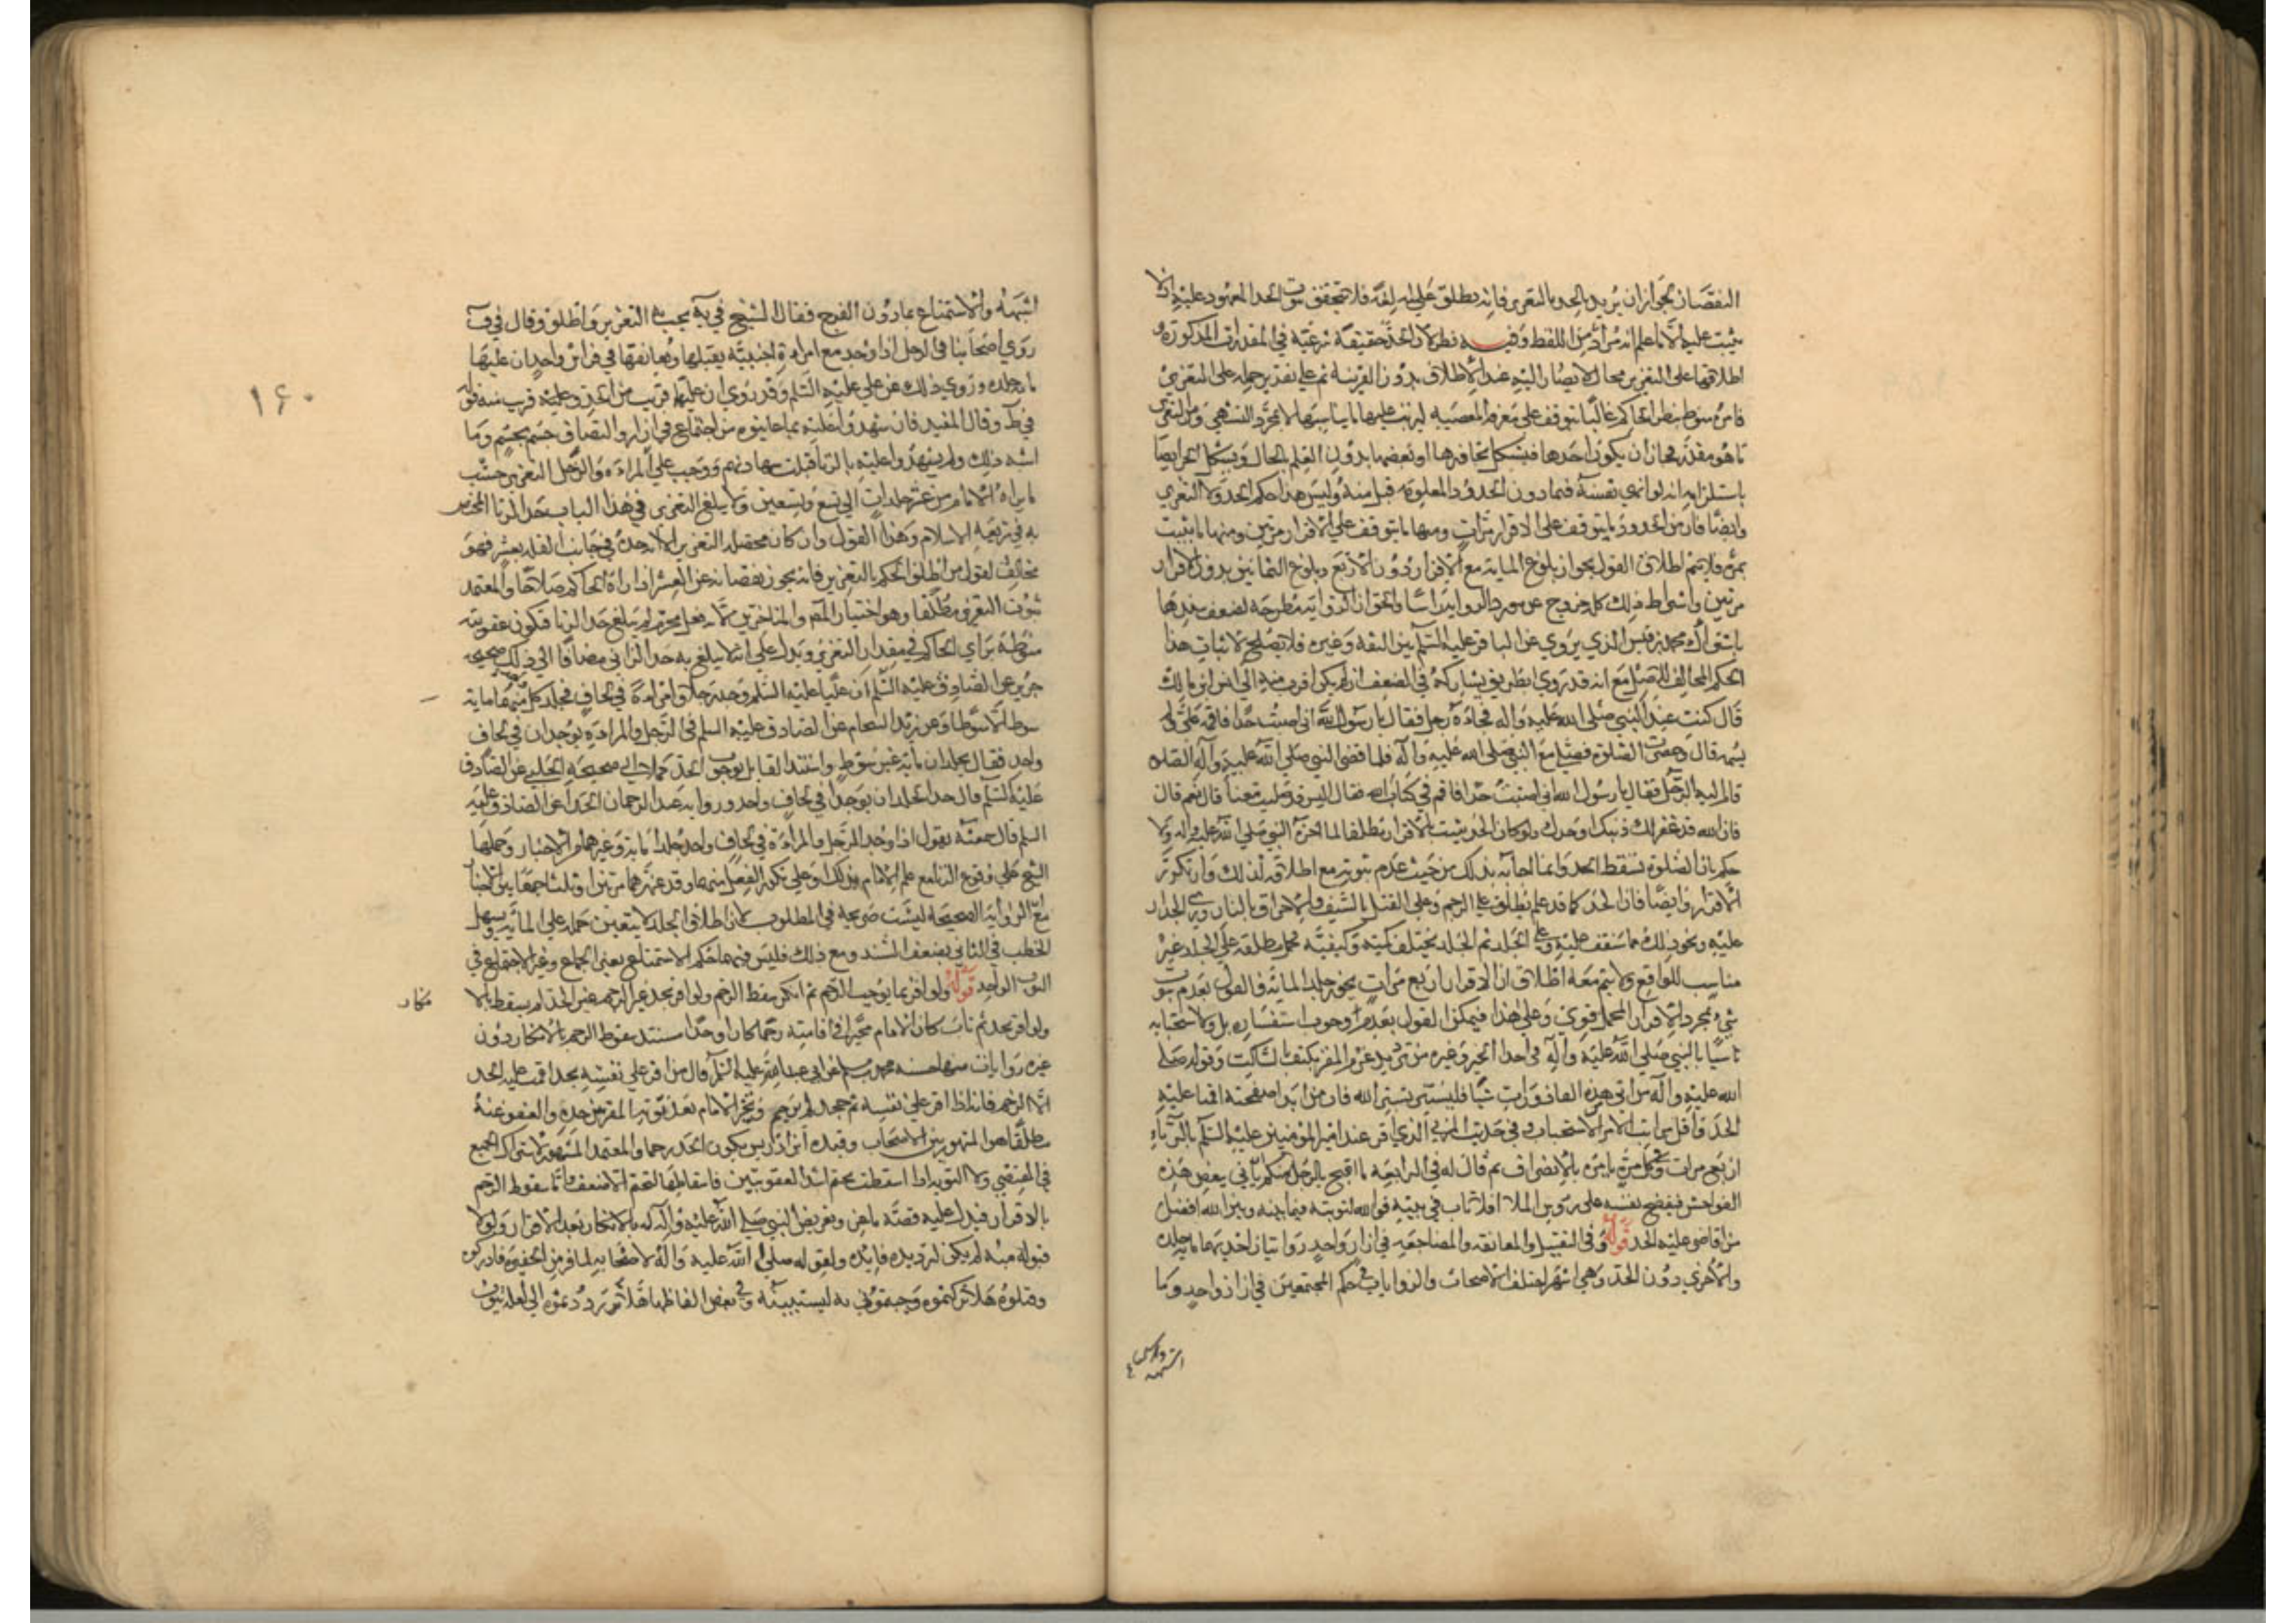 النقصان لجواز ان يريد بالحد التعزير فانه يطلق عليه لغة فلا يتحقق ثبوت الحد المعهود عليه اذ لا
يثبت عليه الا ما علم انه مراد من اللفظ وفيه نظر لان الحد حقيقة شرعية في المقدرات المذكورة و
اطلاقها على التعزير مجاز لا يصار اليه عند الاطلاق بدون القرينة ثم على تقدير حمله على التعزير
فامره منوط بنظر الحاكم غالبا يتوقف على معرفة المعصية ليرتب عليها ما يناسبها لا بمجرد التشهي ومن التعزير
ما هو مقدر فجاز ان يكون احدها فيشكل تجاوزها او نقصها بدون العلم بالحال ويشكل ايضا
باستلزامه انه لو انهى نفسه فيما دون الحدود المعلومة قبل منه وليس هذا حكم الحد ولا التعزير
وايضا فان من الحدود ما يتوقف على الاقرار مرات ومنها ما يتوقف على الاقرار مرتين ومنها ما يثبت
بمرة فلا يتم اطلاق القول بجواز بلوغ الماية مع الاقرار دون الاربع وبلوغ الثمانين بدون الاقرار
مرتين واشتراط ذلك كله خروج عن مورد الرواية راسا والحق ان الرواية مطرحة لضعف سندها
باشتراك محمد بن قيس الذي يروي عن الباقر عليه السلم بين الثقة وغيره فلا يصلح لاثبات هذا
الحكم المخالف للاصل مع انه قد روي بطريق يشاركه في الضعف ان لم يكن اقرب منه الى انس ابن مالك
قال كنت عند النبي صلى الله عليه واله فجاءه رجل فقال يا رسول الله اني اصبت حدا فاقمه علي ولم
يسمه قال وحضرت الصلوة فصلى مع النبي صلى الله عليه واله فلما قضى النبي صلى الله عليه واله الصلوة
قام اليه الرجل فقال يا رسول الله اني اصبت حدا فاقم في كتاب الله فقال اليس قد صليت معنا قال نعم قال
فان الله قد غفر لك ذنبك او حدك ولو كان الحد يثبت بالاقرار مطلقا لما اخره النبي صلى الله عليه واله ولا
حكم بان الصلوة تسقط الحد وانما اجابه بذلك من حيث عدم ثبوته مع اطلاقه لذلك وان تكرر
الاقرار وايضا فان الحد كما قد علم يطلق على الرجم وعلى القتل بالسيف والاحراق بالنار ورمي الجدار
عليه ونحو ذلك مما ستقف عليه وعلى الجلد ثم الجلد يختلف كميته وكيفيته فحمل مطلقه على الجلد غير
مناسب للواقع ولا يتم معه اطلاق ان الاقرار اربع مرات يجوز جلد الماية فالقول بعدم ثبوت
شيء بمجرد الاقرار المجمل قوي وعلى هذا فيمكن القول بعدم وجوب استفساره بل ولا استحبابه
تاسيا بالنبي صلى الله عليه واله في احد الخبر وغيره من ترديد عزم المقر بكيف بالساكت وقوله صلى
الله عليه واله من اتى هذه القاذورات شيا فليستتر بستر الله فان من ابدا صفحته اقمنا عليه
الحد واقل مراتب الامر الاستحباب وفي حديث المزني الذي اقر عند امير المؤمنين عليه السلم بالزناء
اربع مرات وفي كل مرة يامره بالانصراف ثم قال له في الرابعة ما اقبح بالرجل منكم ياتي بعض هذه
الفواحش فيفضح نفسه على رؤس الملا افلا تاب في بيته فوالله لتوبته فيما بينه وبين الله افضل
من اقامتي عليه الحد قوله وفي التقبيل والمعانقة والمضاجعة في ازار واحد روايتان احديهما ماية جلدة
والاخرى دون الحد وهي اشهر اختلف الاصحاب والروايات في حكم المجتمعين في ازار واحد وما
اشبهه
اشبهه والاستمتاع بما دون الفرج فقال الشيخ في ية يجب به التعزير واطلق وقال في ف
روى اصحابنا في الرجل اذا وجد مع امراة اجنبية يقبلها ويعانقها في فراش واحد ان عليهما
ماية جلدة وروي ذلك عن علي عليه السلم وقد روي ان عليهما قريب من الحد وعليه قرب منه قوله
في ط وقال المفيد فان شهدوا عليه بما عاينوه من اجتماع في ازار والتصاق جسم بجسم وما
اشبه ذلك ولم يشهدوا عليه بالزنا قبلت شهادتهم ووجب على المراءة والرجل التعزير حسب
ما يراه الامام من عشر جلدات الى تسع وتسعين ولا يبلغ التعزير في هذا الباب حد الزنا المختص
به في شريعة الاسلام وهذا القول وان كان محصله التعزير الا انه حده في جانب القلة بعشر فهو
مخالف لقول من اطلق الحكم بالتعزير فانه يجوز نقصانه عن العشر اذا راه الحاكم صلاحا والمعتمد
ثبوت التعزير مطلقا وهو اختيار المص والمتاخرين لانه فعل محرم لم يبلغ حد الزنا فتكون عقوبته
منوطة براي الحاكم في مقدار التعزير ويدل على انه لا يبلغ به حد الزاني مضافا الى ذلك صحيحة
حريز عن الصادق عليه السلم ان عليا عليه السلم وجد رجلا وامراءة في لحاف فجلد كل منهما ماية
سوط الا سوطا وعن زيد الشحام عن الصادق عليه السلم في الرجل والمراءة يوجدان في لحاف
واحد فقال يجلدان ماية غير سوط واستند القايل بوجوب الحد كملا الى صحيحة الحلبي عن الصادق
عليه السلم قال حد الجلد ان يوجدا في لحاف واحد ورواية عبد الرحمان الحذاء عن الصادق عليه
السلم قال سمعته يقول اذا وجد الرجل والمراءة في لحاف واحد جلدا ماية وغيرهما من الاخبار وحملها
الشيخ على وقوع الزنا مع علم الامام بذلك او على تكرر الفعل منهما وقد عزرهما مرتين او ثلثا جمعا بين الاخبار
مع ان الرواية الصحيحة ليست صريحة في المطلوب لان اطلاق الجلد لا يتعين حمله على الماية ويسهل
الخطب في الثاني بضعف السند ومع ذلك فليس فيهما حكم الاستمتاع بغير الجماع وغير الاجتماع في
الثوب الواحد قوله ولو اقر بما يوجب الرجم ثم انكر سقط الرجم ولو اقر بحد غير الرجم لم يسقط بالا
نكار
ولو اقر بحد ثم تاب كان الامام مخيرا في اقامته رجما كان او حدا مستند سقوط الرجم بالانكار دون
غيره روايات منها حسنة محمد بن مسلم عن ابي عبد الله عليه السلم قال من اقر على نفسه بحد اقمت عليه الحد
الا الرجم فانه اذا اقر على نفسه ثم جحد لم يرجم وتخير الامام بعد توبة المقر بين حده والعفو عنه
مطلقا هو المشهور بين الاصحاب وقيده ابن ادريس بكون الحد رجما والمعتمد المشهور لاشتراك الجميع
في المقتضي ولان التوبة اذا اسقطت تحتم اشد العقوبتين فاسقاطها لتحتم الاضعف واما سقوط الرجم
بالاقرار فيدل عليه قصة ماعز وتعريض النبي صلى الله عليه واله له بالانكار بعد الاقرار ولولا
قبوله منه لم يكن لترديده فايدة ولقوله صلى الله عليه واله لاصحابه لما فر من الحفيرة فادركوه
وقتلوه هلا تركتموه وجئتموني به ليستثبته وفي بعض الفاظها هلا رددتموه الي لعله يتوب
۱۶۰